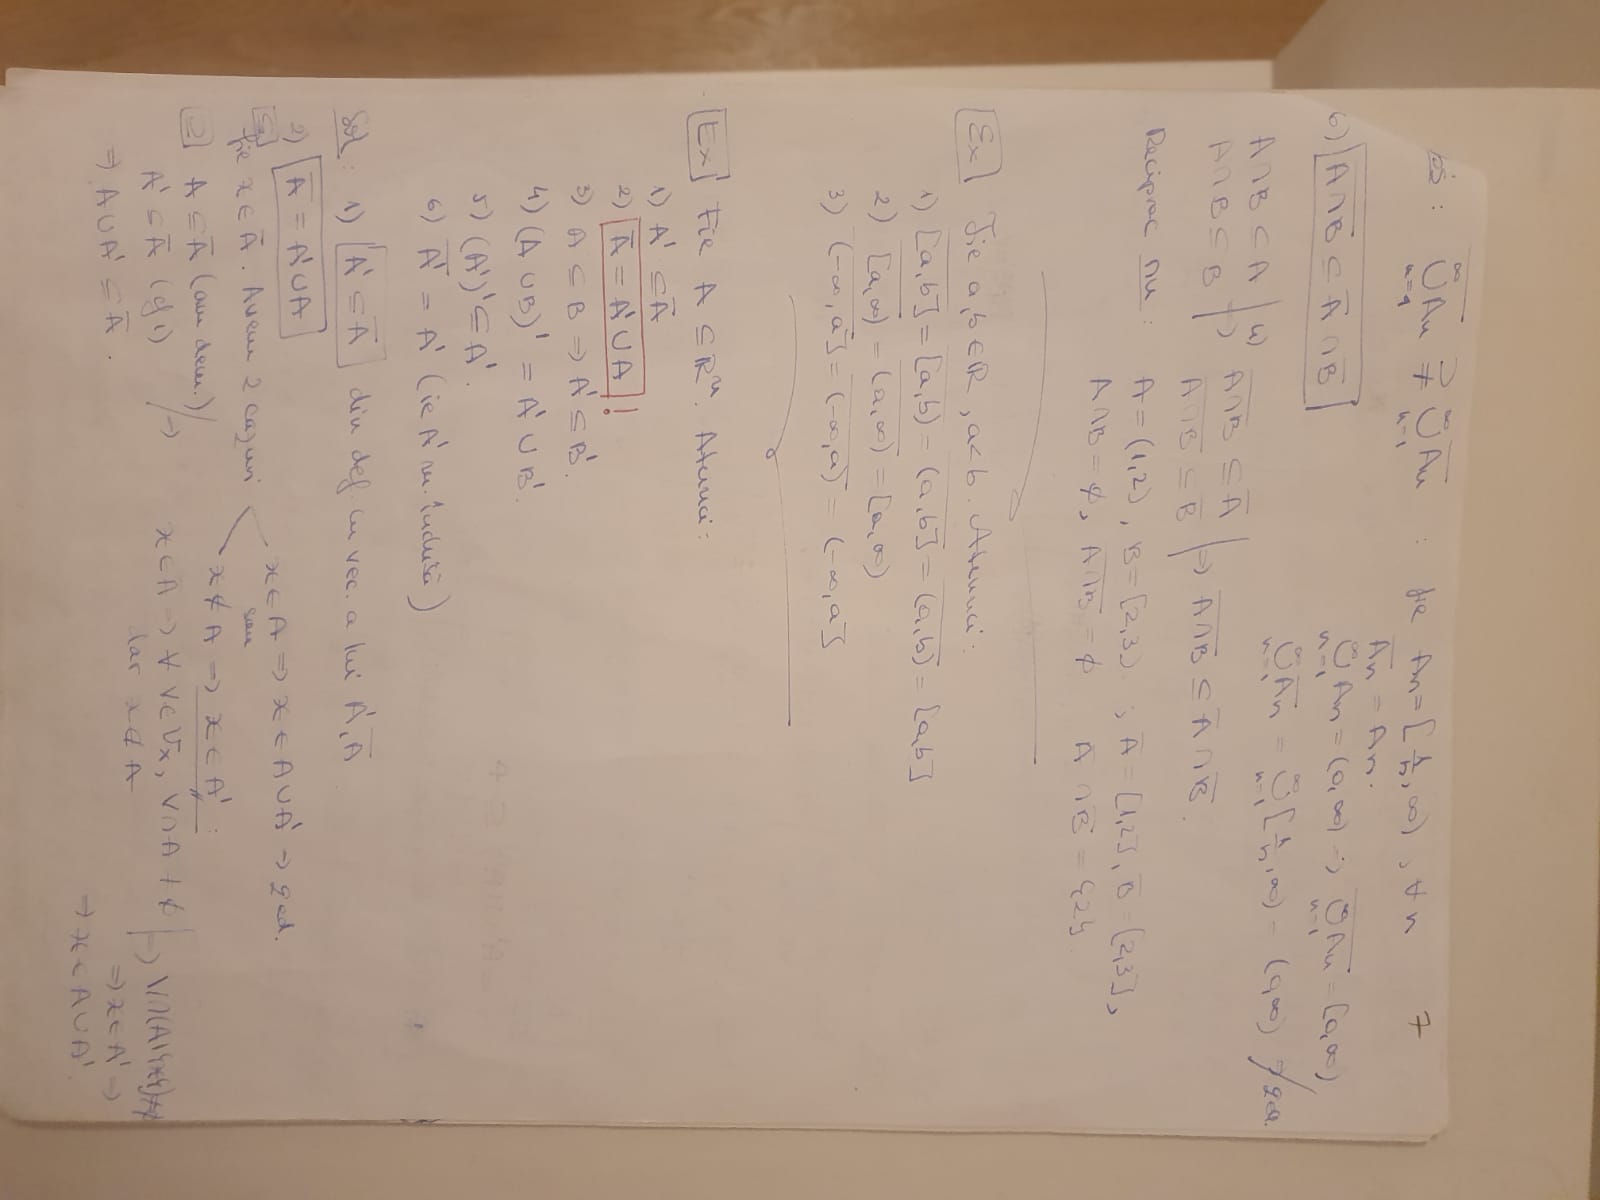 Obs: $\overline{\bigcup_{n=1}^{\infty} A_n} \supsetneq \bigcup_{n=1}^{\infty} \overline{A_n}$ : fie $A_n = [\frac{1}{n}, \infty)$, ∀ n
7
$\overline{A_n} = A_n$.
$\bigcup_{n=1}^{\infty} A_n = (0, \infty)$ ⇒ $\overline{\bigcup_{n=1}^{\infty} A_n} = [0, \infty)$
$\bigcup_{n=1}^{\infty} \overline{A_n} = \bigcup_{n=1}^{\infty} [\frac{1}{n}, \infty) = (0, \infty)$ ⇒ qed.
6) $\overline{A∩B} ⊆ \overline{A} ∩ \overline{B}$
A∩B ⊆ A | 4) $\overline{A∩B} ⊆ \overline{A}$
A∩B ⊆ B | ⇒ $\overline{A∩B} ⊆ \overline{B}$ | ⇒ $\overline{A∩B} ⊆ \overline{A} ∩ \overline{B}$.
Reciproc nu: A = (1,2), B = (2,3) ; $\overline{A}$ = [1,2], $\overline{B}$ = [2,3],
A∩B = ∅, $\overline{A∩B}$ = ∅ $\overline{A} ∩ \overline{B}$ = {2}.
Ex Fie a, b ∈ ℝ, a < b. Atunci:
1) $\overline{[a,b]} = \overline{[a,b)} = \overline{(a,b]} = \overline{(a,b)} = [a,b]$
2) $\overline{[a,∞)} = \overline{(a,∞)} = [a,∞)$
3) $\overline{(-∞,a]} = \overline{(-∞,a)} = (-∞,a]$
Ex Fie A ⊆ ℝⁿ. Atunci:
1) A' ⊆ $\overline{A}$
2) $\overline{A}$ = A' ∪ A !
3) A ⊆ B ⇒ A' ⊆ B'.
4) (A ∪ B)' = A' ∪ B'.
5) (A')' ⊆ A'.
6) $\overline{A'}$ = A' (ie A' m. închisă)
Sol: 1) A' ⊆ $\overline{A}$ din def. cu vec. a lui A', $\overline{A}$
2) $\overline{A}$ = A' ∪ A
⊆ fie x ∈ $\overline{A}$. Avem 2 cazuri
x ∈ A ⇒ x ∈ A ∪ A' ⇒ qed.
sau
x ∉ A ⇒ x ∈ A' :
x ∈ $\overline{A}$ ⇒ ∀ V ∈ 𝒱ₓ, V ∩ A ≠ ∅ | ⇒ V ∩ (A \ {x}) ≠ ∅
dar x ∉ A
⇒ x ∈ A' ⇒
⇒ x ∈ A ∪ A'
⊇ A ⊆ $\overline{A}$ (am dem.)
A' ⊆ $\overline{A}$ (cf 1) | ⇒
⇒ A ∪ A' ⊆ $\overline{A}$.